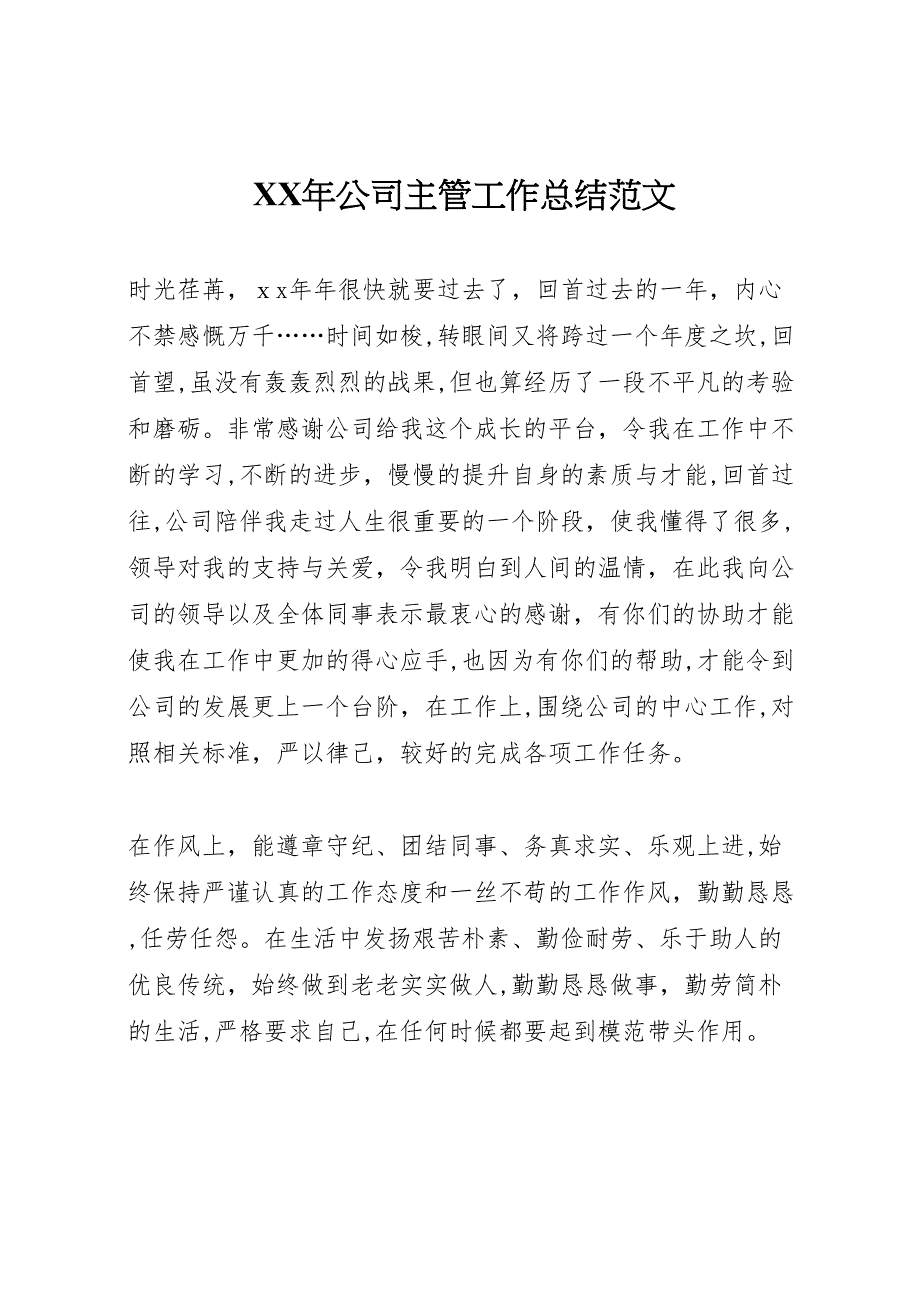 XX年公司主管工作总结范文
时光荏苒，xx年年很快就要过去了，回首过去的一年，内心
不禁感慨万千……时间如梭,转眼间又将跨过一个年度之坎,回
首望,虽没有轰轰烈烈的战果,但也算经历了一段不平凡的考验
和磨砺。非常感谢公司给我这个成长的平台，令我在工作中不
断的学习,不断的进步，慢慢的提升自身的素质与才能,回首过
往,公司陪伴我走过人生很重要的一个阶段，使我懂得了很多,
领导对我的支持与关爱，令我明白到人间的温情，在此我向公
司的领导以及全体同事表示最衷心的感谢，有你们的协助才能
使我在工作中更加的得心应手,也因为有你们的帮助,才能令到
公司的发展更上一个台阶，在工作上,围绕公司的中心工作,对
照相关标准，严以律己，较好的完成各项工作任务。
在作风上，能遵章守纪、团结同事、务真求实、乐观上进,始
终保持严谨认真的工作态度和一丝不苟的工作作风，勤勤恳恳
,任劳任怨。在生活中发扬艰苦朴素、勤俭耐劳、乐于助人的
优良传统，始终做到老老实实做人,勤勤恳恳做事，勤劳简朴
的生活,严格要求自己,在任何时候都要起到模范带头作用。